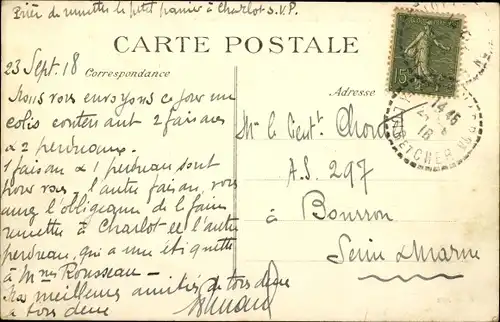 Prier de remettre le petit panier à Charlot S.V.P.
CARTE POSTALE
23 Sept. 18 Correspondance
Adresse
Nous vous envoyons ce jour un
colis contenant 2 faisans
& 2 perdreaux.
1 faisan & 1 perdreau sont
pour vous, l'autre faisan, vous
aurez l'obligeance de l faire
remettre à Charlot et l'autre
perdreau, qui a une étiquette
à Mme Rousseau —
Nos meilleures amitiés de tous deux
à tous deux
Mr le Lieut
A.S. 297
à Bourron
Seine & Marne
15
14 45
18
LOIR-ET-CHER